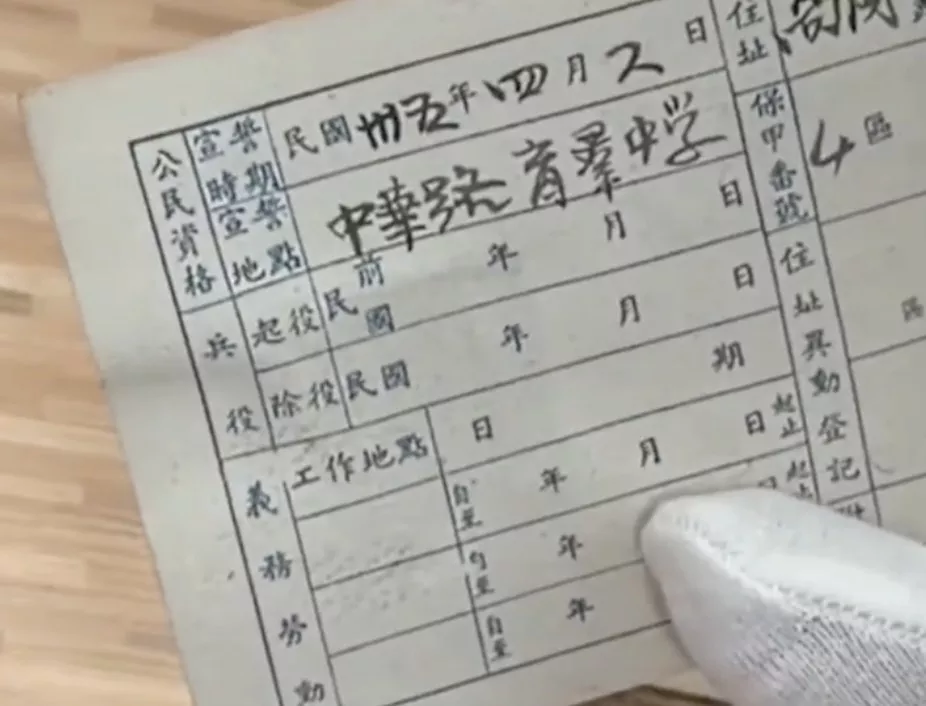 公民資格
宣誓時期
民國卅五年四月 日
宣誓地點
中華路育羣中学
兵役
起役
民前國 年 月 日
除役
民國 年 月 日
義務勞動
工作地點
日期
自至 年 月 日 起止
自至 年 起止
自至 年
住址
保甲番號
4區
住址異動登記
區